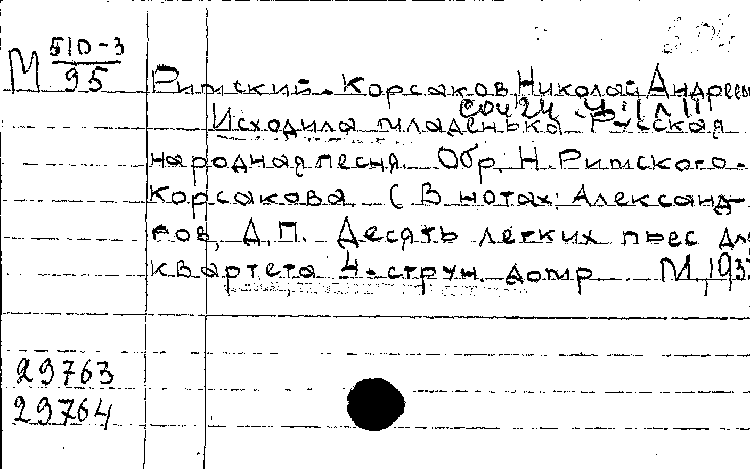 М 510-3
95
Римский-Корсаков, Николай Андрееви
соч 24
Исходила младенька. Русская
народная песня. Обр. Н. Римского-
Корсакова. (В нотах: Александ-
ров, Д.П. Десять легких пьес для
квартета 4-струн. домр. М., 193
29763
29764